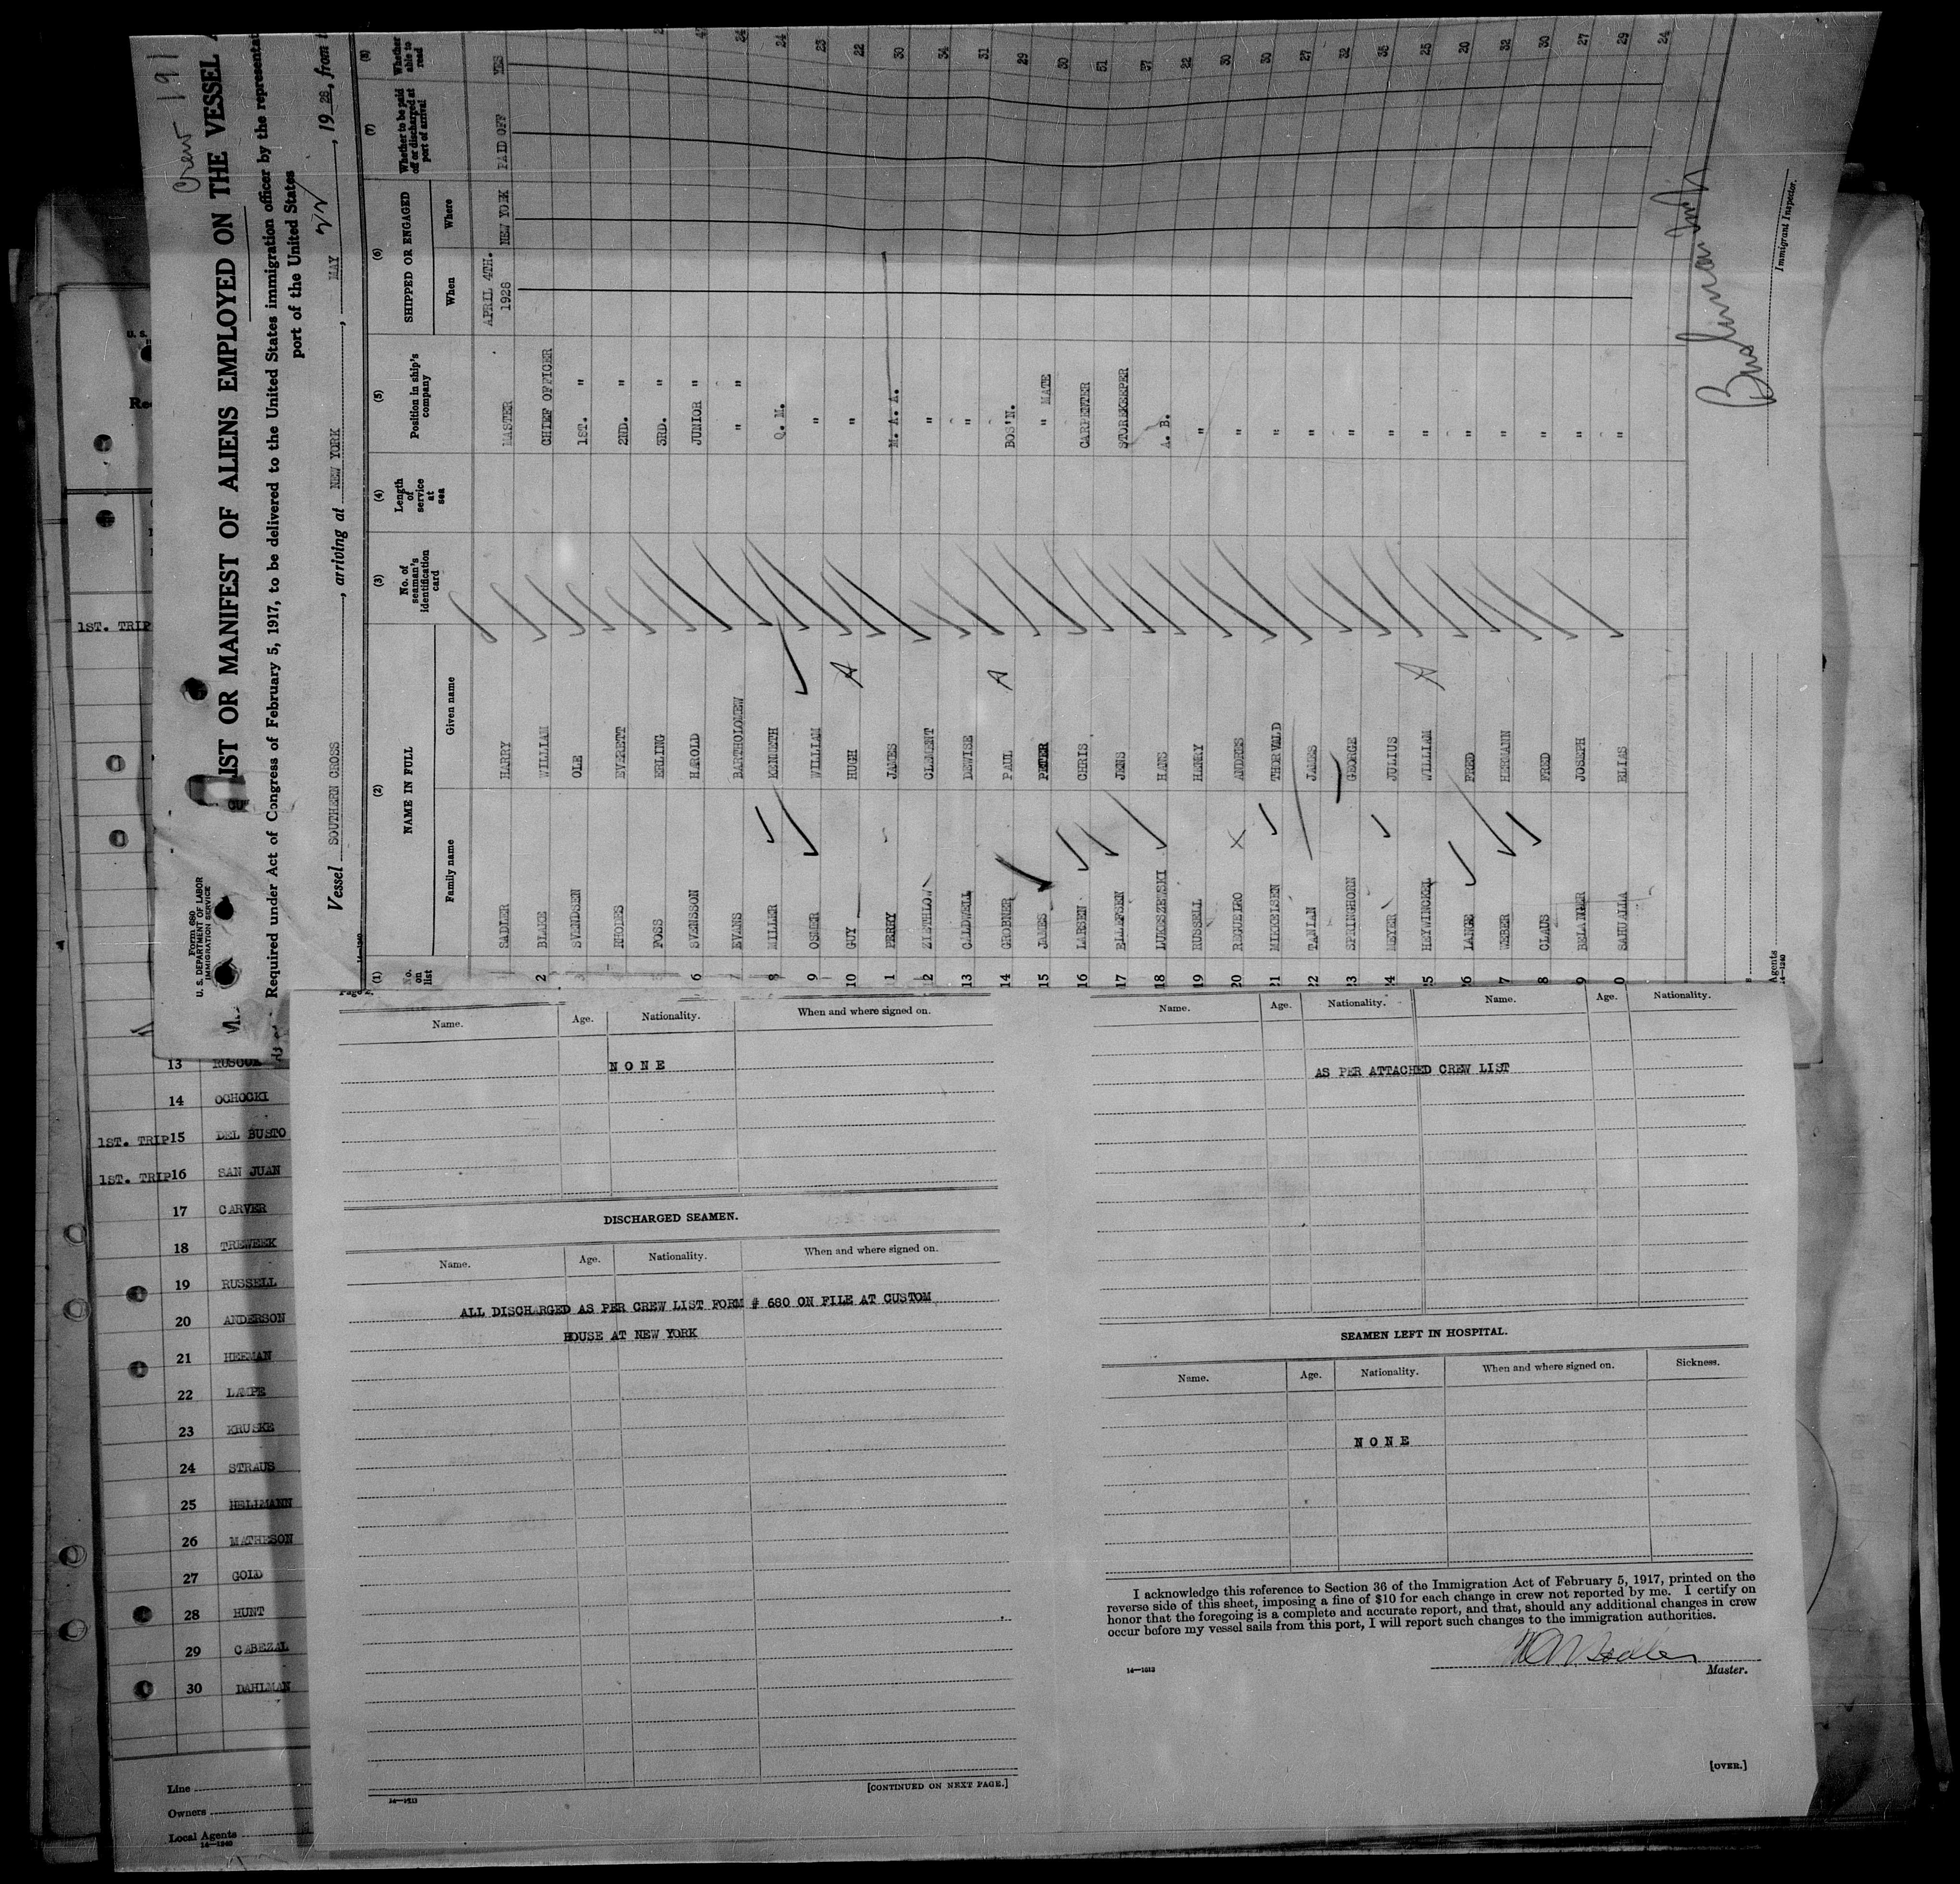 Crew 191
LIST OR MANIFEST OF ALIENS EMPLOYED ON THE VESSEL
Required under Act of Congress of February 5, 1917, to be delivered to the United States immigration officer by the
port of the United States
Form 680
U. S. DEPARTMENT OF LABOR
IMMIGRATION SERVICE
Vessel SOUTHERN CROSS, arriving at NEW YORK, MAY 1928, from
(1) (2) (3) (4) (5) (6) (7) (8)
No. on list NAME IN FULL No. of seaman's identification card Length of service at sea Position in ship's company SHIPPED OR ENGAGED Whether to be paid off or discharged at port of arrival Whether able to read
Family name Given name When Where
SADLER HARRY MASTER APRIL 4TH. 1928 NEW YORK PAID OFF YES
2 BLAKE WILLIAM CHIEF OFFICER
SVENDSEN OLE 1ST. "
RHODES EVERETT 2ND. "
FOSS ERLING 3RD. "
6 SVENSSON HAROLD JUNIOR " 34
EVANS BARTHOLOMEW " " 24
8 MILLER KENNETH Q. M. 23
9 OSMER WILLIAM " 22
10 GUY HUGH " 30
1 PERRY JAMES M. A. A. 34
2 ZIETHLOW CLEMENT " 31
13 CALDWELL DEWISE " 29
14 GROBNER PAUL BOS'N. 30
15 JAMES PETER " MATE 51
16 LARSEN CHRIS CARPENTER 37
17 ELLEFSEN JENS STOREKEEPER 22
18 LUKESZEWSKI HANS A. B. 30
19 RUSSELL HENRY " 30
20 REGUEIRO ANDRES " 27
21 MIKKELSEN THORVALD " 32
22 TANIAN JAMES " 36
23 SPRINGHORN GEORGE " 25
24 MEYER JULIUS " 20
25 HEYWINCKEL WILLIAM " 32
26 LANGE FRED " 30
7 WEBER HERMANN " 27
8 CLAUS FRED " 29
9 BELANGER JOSEPH " 24
0 SAHUALLA ELIAS "
Immigrant Inspector.
Agents
14—1240
1ST. TRIP
13 RUSCOE
14 OCHOCKI
1ST. TRIP 15 DEL BUSTO
1ST. TRIP 16 SAN JUAN
17 CARVER
18 TREWEEK
19 RUSSELL
20 ANDERSON
21 HEEMAN
22 LAMPE
23 KRUSKE
24 STRAUS
25 HELLMANN
26 MATHESON
27 GOLD
28 HUNT
29 CABEZAL
30 DAHLMAN
Line
Owners
Local Agents
14—1240
Name. Age. Nationality. When and where signed on.
NONE
DISCHARGED SEAMEN.
Name. Age. Nationality. When and where signed on.
ALL DISCHARGED AS PER CREW LIST FORM # 680 ON FILE AT CUSTOM
HOUSE AT NEW YORK
[CONTINUED ON NEXT PAGE.]
Name. Age. Nationality. Name. Age. Nationality.
AS PER ATTACHED CREW LIST
SEAMEN LEFT IN HOSPITAL.
Name. Age. Nationality. When and where signed on. Sickness.
NONE
I acknowledge this reference to Section 36 of the Immigration Act of February 5, 1917, printed on the
reverse side of this sheet, imposing a fine of $10 for each change in crew not reported by me. I certify on
honor that the foregoing is a complete and accurate report, and that, should any additional changes in crew
occur before my vessel sails from this port, I will report such changes to the immigration authorities.
Master.
[OVER.]